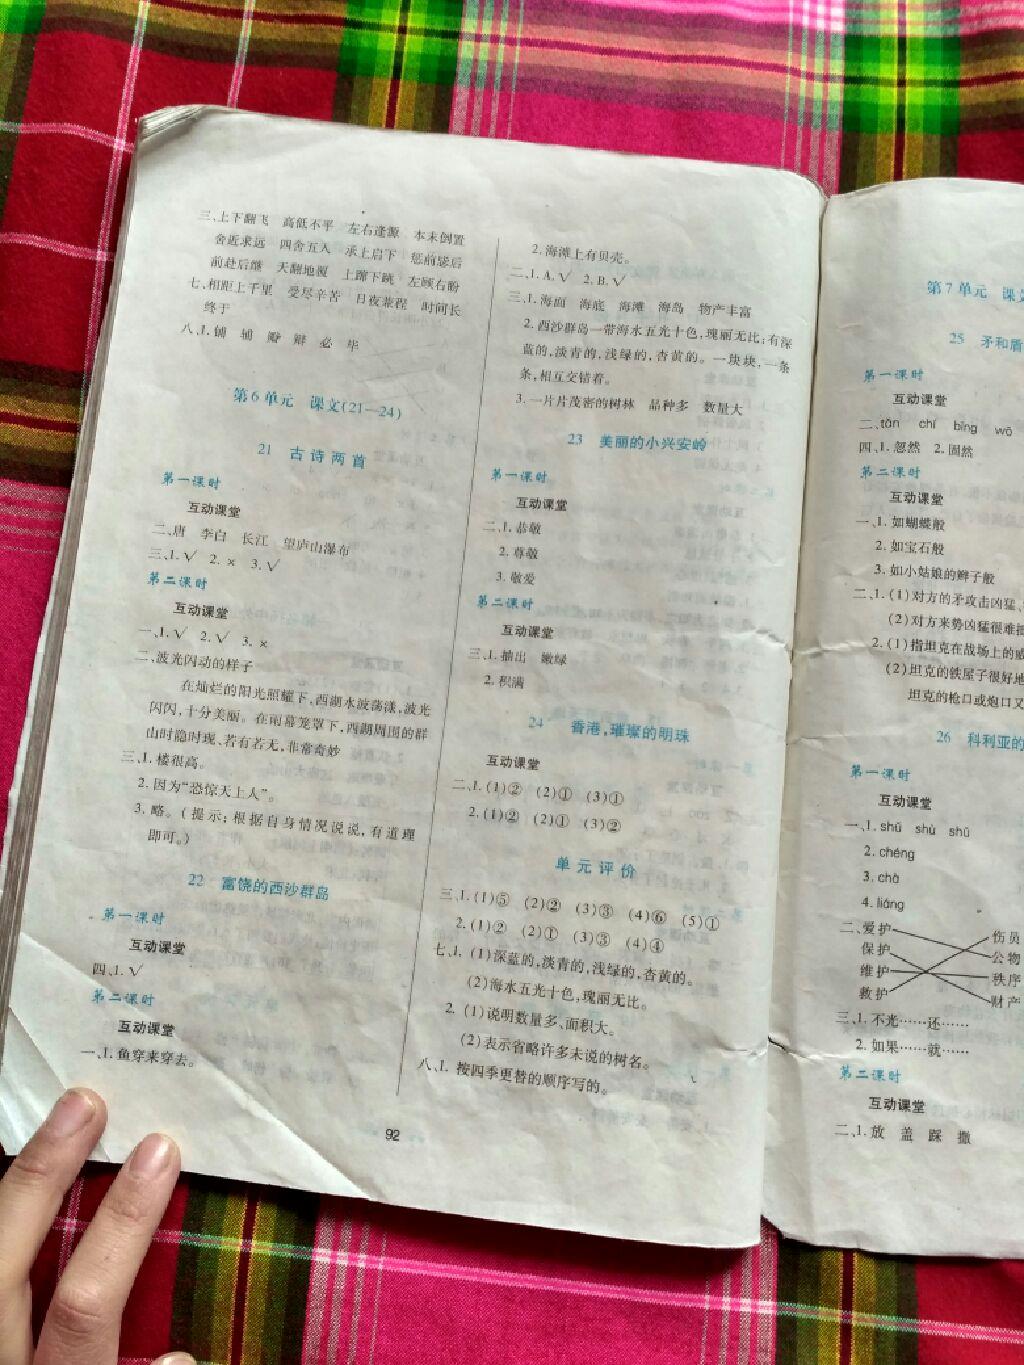 三、上下翻飞 高低不平 左右逢源 本末倒置
舍近求远 四舍五入 承上启下 惩前毖后
前赴后继 天翻地覆 上蹿下跳 左顾右盼
七、相距上千里 受尽辛苦 日夜兼程 时间长
终于
八、1. 辅 瓣 辩 必 毕
第6单元 课文(21—24)
21 古诗两首
第一课时
互动课堂
二、唐 李白 长江 望庐山瀑布
三、1.√ 2.× 3.√
第二课时
互动课堂
一、1.√ 2.√ 3.×
二、波光闪动的样子
在灿烂的阳光照耀下,西湖水波荡漾,波光
闪闪,十分美丽。在雨幕笼罩下,西湖周围的群
山时隐时现、若有若无,非常奇妙
三、1.楼很高。
2.因为“恐惊天上人”。
3.略。(提示:根据自身情况说说,有道理
即可。)
22 富饶的西沙群岛
第一课时
互动课堂
四、1.√
第二课时
互动课堂
一、1.鱼穿来穿去。
2.海滩上有贝壳。
二、1.A.√ 2.B.√
三、1.海面 海底 海滩 海岛 物产丰富
2.西沙群岛一带海水五光十色,瑰丽无比;有深
蓝的,淡青的,浅绿的,杏黄的。一块块,一条
条,相互交错着。
3.一片片茂密的树林 品种多 数量大
23 美丽的小兴安岭
第一课时
互动课堂
二、1.恭敬
2.尊敬
3.敬爱
第二课时
互动课堂
三、1.抽出 嫩绿
2.积满
24 香港,璀璨的明珠
互动课堂
二、1.(1)② (2)① (3)①
2.(1)② (2)① (3)②
单元评价
三、1.(1)⑤ (2)② (3)③ (4)⑥ (5)①
2.(1)② (2)① (3)③ (4)④
七、1.(1)深蓝的,淡青的,浅绿的,杏黄的。
(2)海水五光十色,瑰丽无比。
2.(1)说明数量多、面积大。
(2)表示省略许多未说的树名。
八、1.按四季更替的顺序写的。
92
第7单元 课文
25 矛和盾
第一课时
互动课堂
二、tān chí bīng wō
四、1.忽然 2.固然
第二课时
互动课堂
一、1.如蝴蝶般
2.如宝石般
3.如小姑娘的辫子般
二、1.(1)对方的矛攻击凶猛、
(2)对方来势凶猛很难抵
2.(1)指坦克在战场上的威
(2)坦克的铁屋子很好地
坦克的枪口或炮口又
26 科利亚的
第一课时
互动课堂
一、1.shǔ shù shū
2.chéng
3.chā
4.liáng
二、爱护 伤员
保护 公物
维护 秩序
救护 财产
三、1.不光……还……
2.如果……就……
第二课时
互动课堂
二、1.放 盖 踩 撒